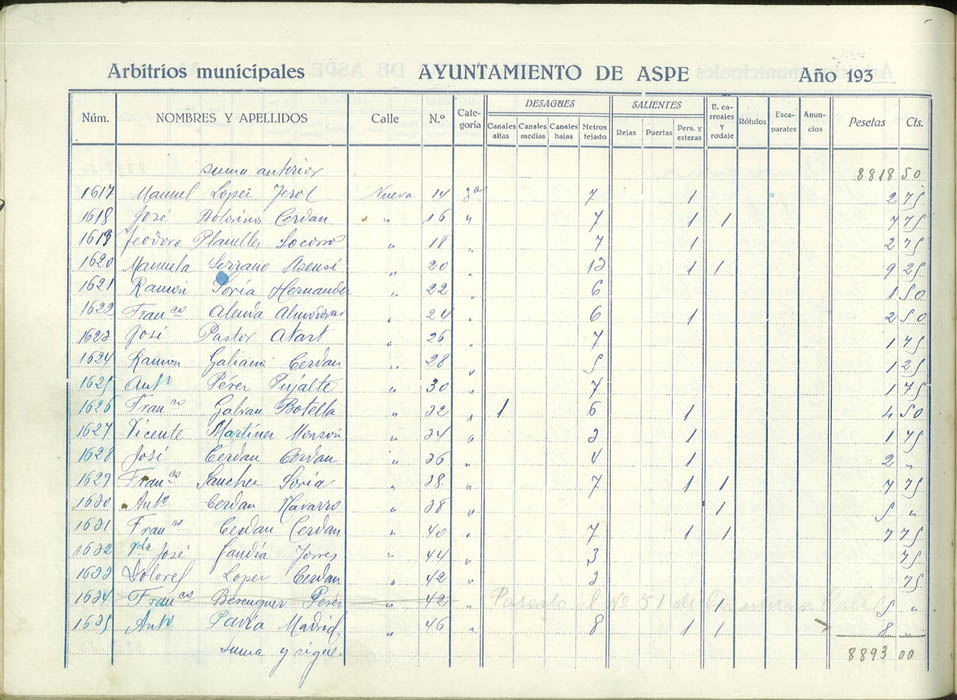 Arbitrios municipales AYUNTAMIENTO DE ASPE Año 193
Núm. NOMBRES Y APELLIDOS Calle N.º Categoría DESAGUES Canales altas Canales medias Canales bajas Metros tejado SALIENTES Rejas Puertas Pers. y esteras E. carruajes y rodaje Rótulos Escaparates Anuncios Pesetas Cts.
Suma anterior 8818 50
1617 Manuel Lopez Jerol Nueva 14 3ª 7 1 2 75
1618 José Cerdan " 16 " 7 1 1 7 75
1619 Teodoro Planelles Socorro " 18 " 7 1 2 75
1620 Manuela Serrano Asensi " 20 " 13 1 1 9 25
1621 Ramón Soria Hernandez " 22 " 6 1 50
1622 Franco Alenda Almodovar " 24 " 6 1 2 50
1623 José Pastor " 26 " 7 1 75
1624 Ramon Galiana Cerdan " 28 " 5 1 25
1625 Antº Pérez Pujalte " 30 " 7 1 75
1626 Franco Galvan Botella " 32 " 1 6 1 4 50
1627 Vicente Martinez Monzón " 34 " 3 1 1 75
1628 José Cerdan Cerdan " 36 " 4 1 2 "
1629 Franco Sanchez Soria " 38 " 7 1 1 7 75
1630 Antº Cerdan Navarro " 38 " 1 5 "
1631 Franco Cerdan Cerdan " 40 " 7 1 1 7 75
1632 Vda José Gandia Torres " 44 " 3 75
1633 Dolores Lopez Cerdan " 42 " 3 75
1634 Franco Berenguer Pérez " 42 " Pasado al Nº 51 de la misma Calle 1 5 "
1635 Antº Pavia Madrid " 46 " 8 1 1 8 "
Suma y sigue 8893 00